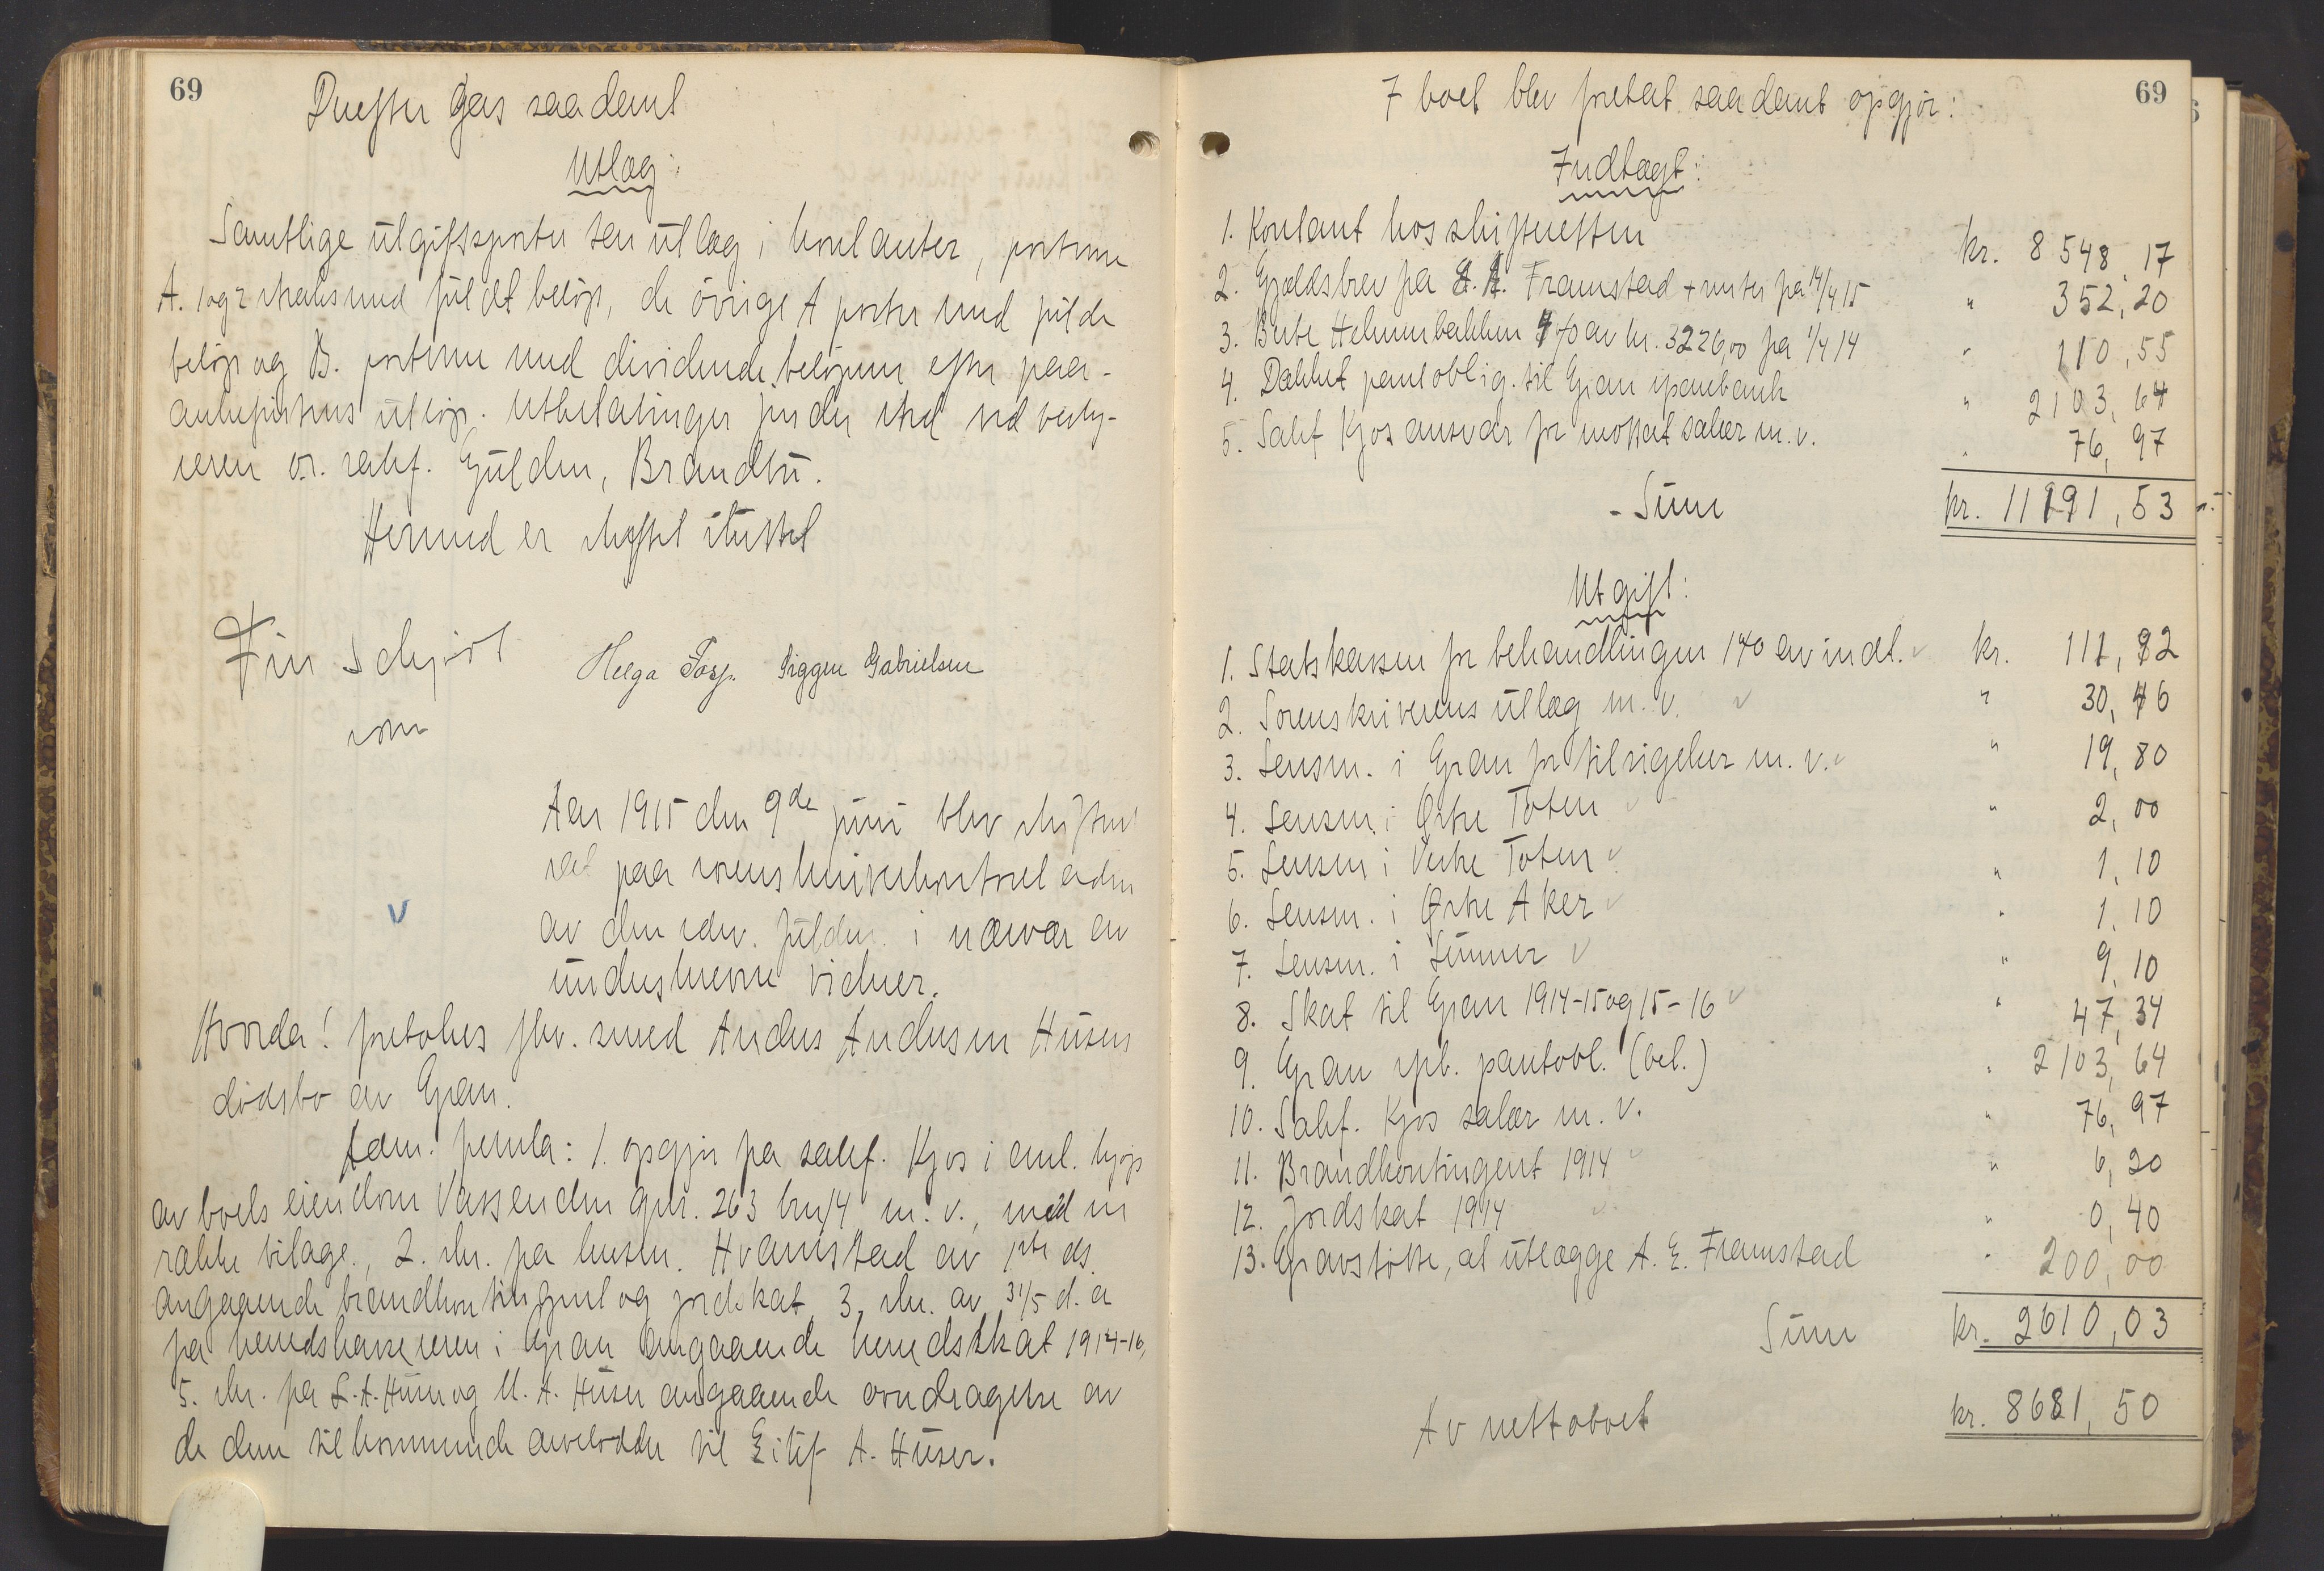 69
Derefter gas saadant
Utlæg:
Samtlige utgiftsposter sker utlæg i kontanter, posterne
A. 1 og 2 straks med fuldt beløp, de øvrige A poster med fulde
beløp og B. posterne med dividende beløpene efter paa-
ankefristens utløp. Utbetalinger finder sted ved besty-
reren o.r. sakf. Gulden, Brandbu.
Hermed er skiftet sluttet
Fin Schjøtt
Helga Torp. Sigge Gabrielsen
Aar 1915 den 9de juni blev skifte
ret paa sorenskriverkontoret adm
av den edsv. fuldm. i nærvær av
underskrevne vidner.
Hvorda! foretokes fhv. smed Anders Andersen Husens
dødsbo av Gran.
Adm. freml: 1. opgjør fra sakf. Kjos i anl. kjøp
av boets eiendom Vassenden gnr. 263 brn 4 m. v., med en
række bilage., 2. skr. fra lensm. Hvamstad av 1ste ds.
angaaende brandkontingent og jordskat, 3. skr. av 31/5 d. a
fra herredskassereren i Gran angaaende herredsskat 1914-16,
5. skr. fra L. A. Huser og M. A. Huser angaaende overdragelse av
de dem tilkommende arvelodder til Eiluf A. Huser.
69
I boet blev foretat saadant opgjør:
Indtægt:
1. Kontant hos skifteretten kr. 8548,17
2. Gjældsbrev fra A. Framstad + renter fra 14/4 15 " 352,20
3. Rente Helmenbakken 4 % av kr. 3226,00 fra 1/4 14 " 110,55
4. Dækket pantoblig. til Gran sparebank " 2103,64
5. Sakf Kjos ansvar for mottat salær m. v. " 76,97
- Sum kr. 11191,53
Utgift:
1. Statskassen for behandlingen 1 % av indt. kr. 111,92
2. Sorenskriverens utlæg m. v. " 30,46
3. Lensm. i Gran for tilsigelser m. v. " 19,80
4. Lensm. i Østre Toten " 2,00
5. Lensm i Vestre Toten " 1,10
6. Lensm. i Østre Aker " 1,10
7. Lensm. i Lunner " 9,10
8. Skat til Gran 1914-15 og 15-16 " 47,34
9. Gran spb. pantobl. (bet.) " 2103,64
10. Sakf. Kjos salær m. v. " 76,97
11. Brandkontingent 1914 " 6,20
12. Jordskat 1914 " 0,40
13. Gravstøtte, at utlægge A. E. Framstad " 200,00
Sum kr. 2610,03
Av nettoboet kr. 8681,50